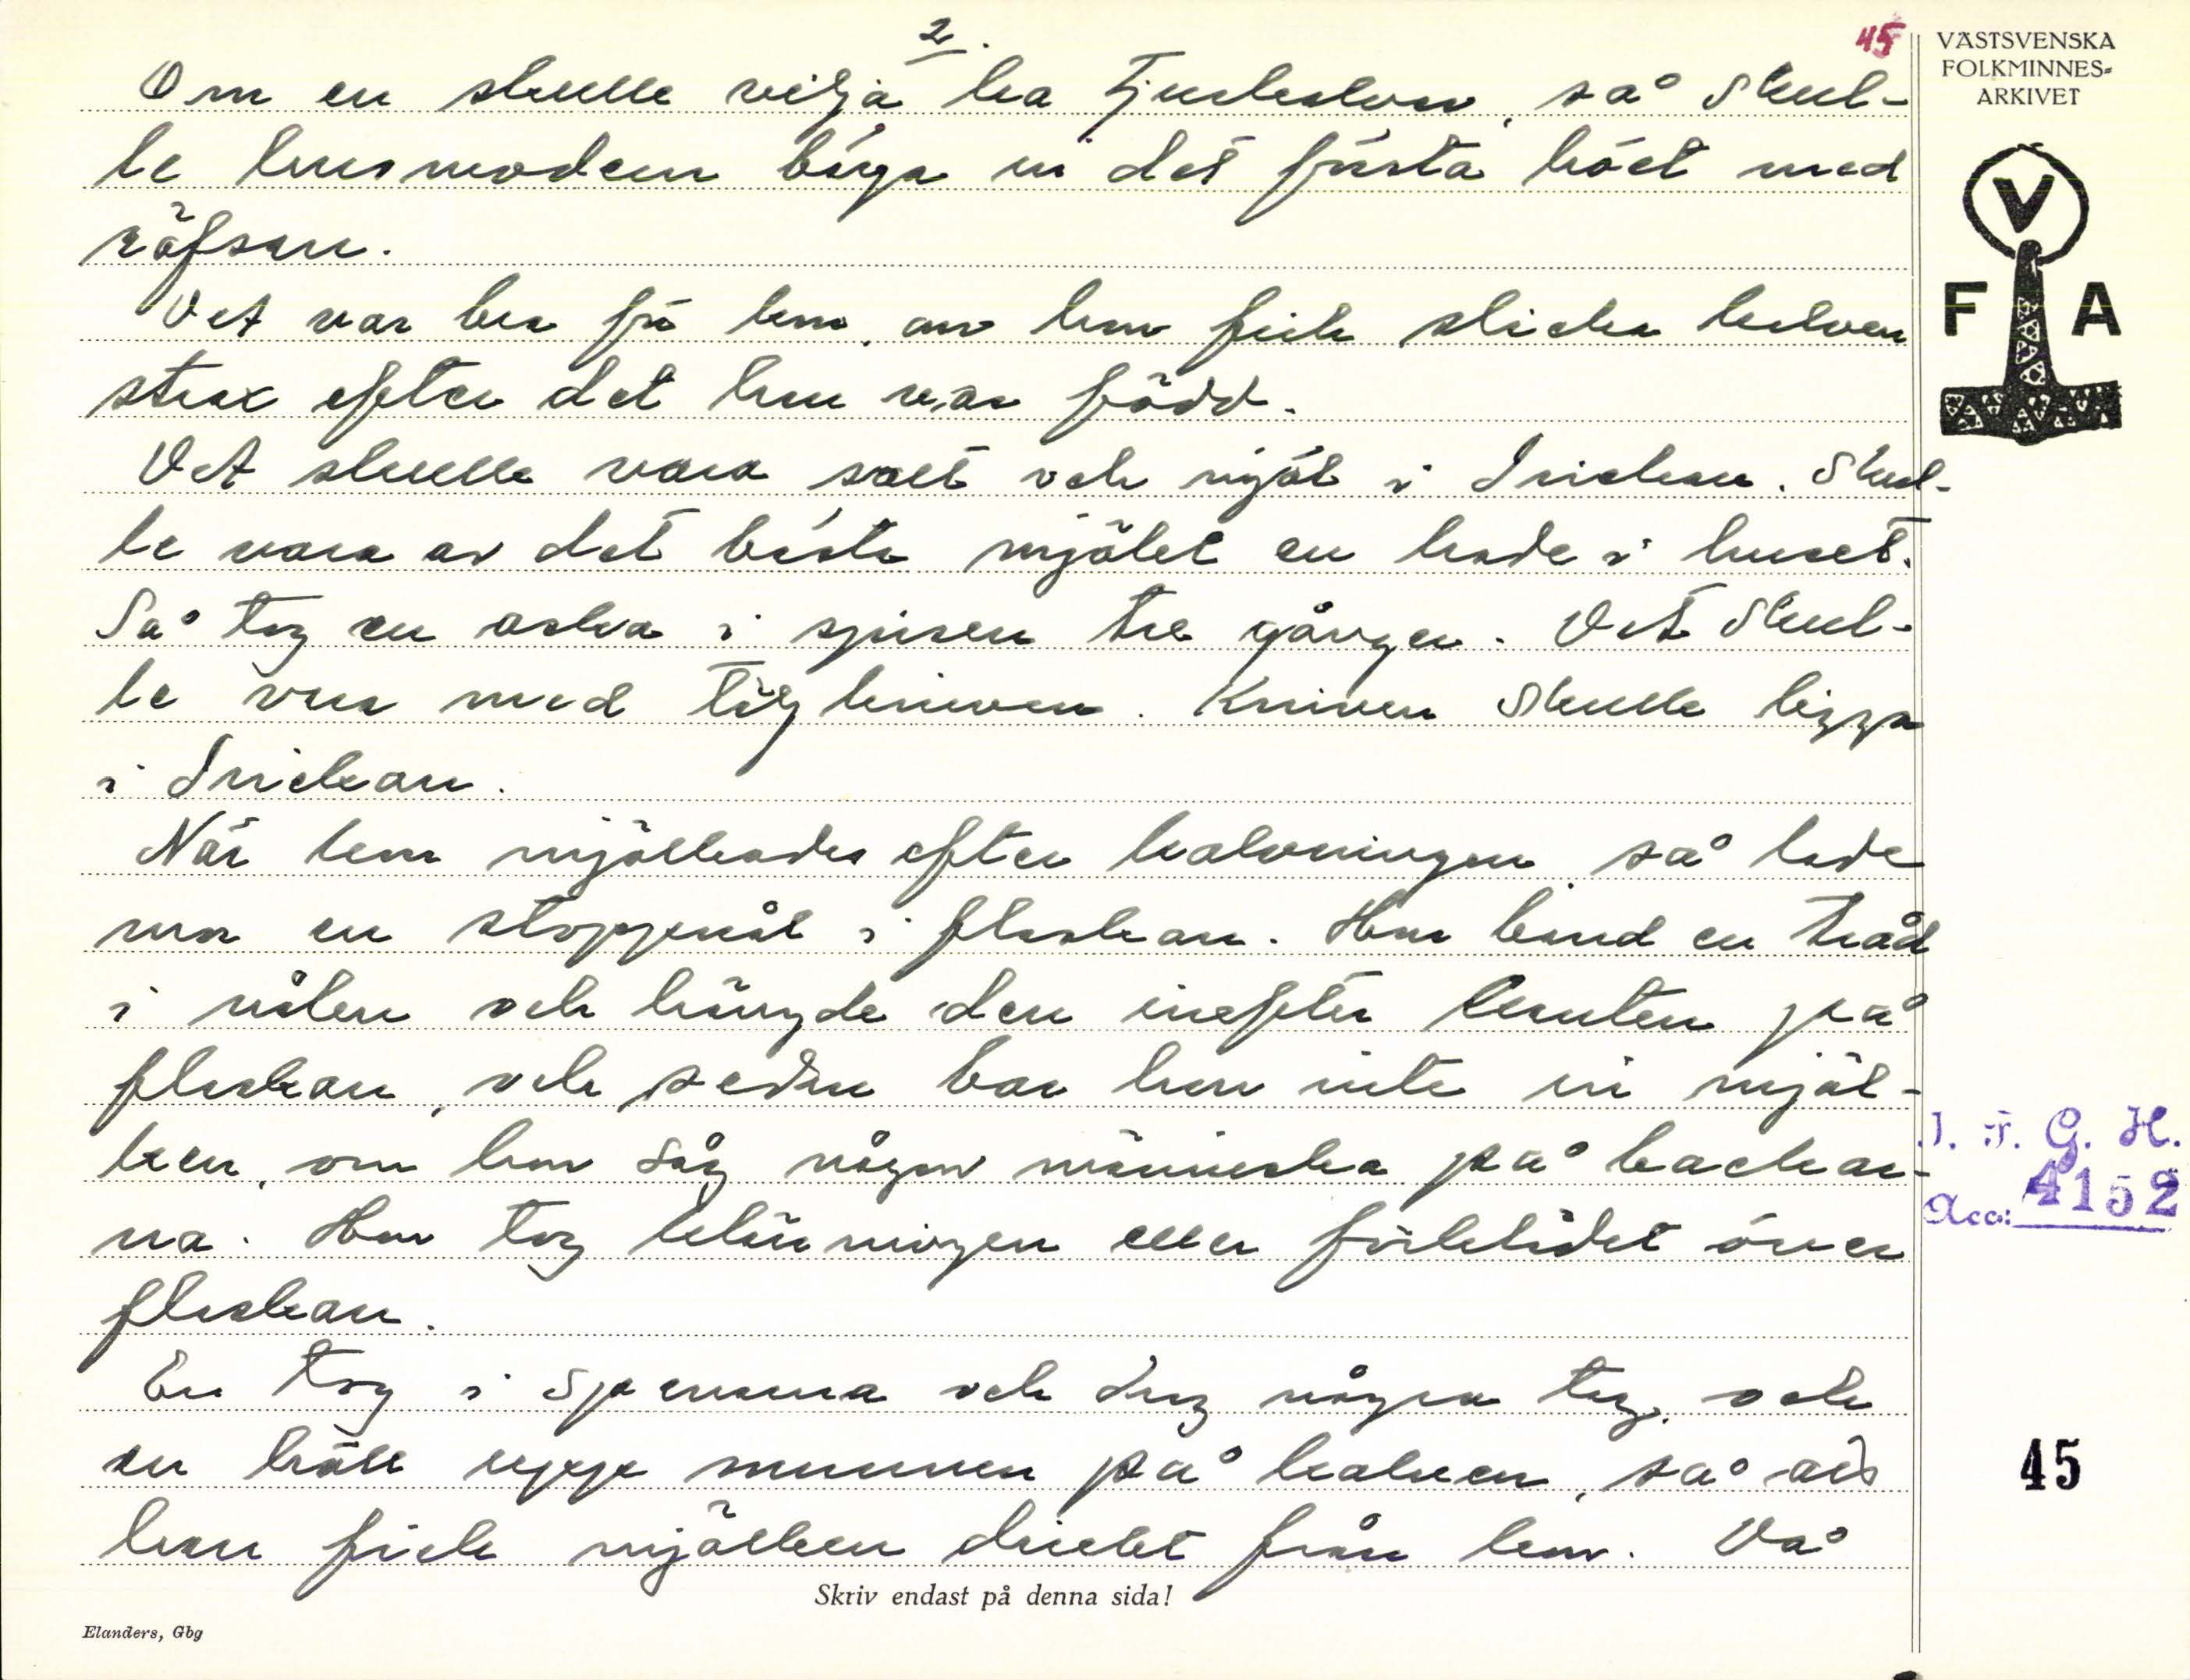 2.
45
VÄSTSVENSKA
FOLKMINNES-
ARKIVET
V
F A
Om en skulle vilja ha tjurkalvar, så skul-
le husmodern börja in det första höet med
räfsan.
Det var bra för kon, om hon fick slicka kalven
strax efter det han var född.
Det skulle vara salt och mjöl i drickan. Skul-
le vara av det bästa mjölet en hade i huset.
Så tog en aska i spisen tre gånger. Det skul-
le vara med täljkniven. Kniven skulle ligga
i drickan.
När kon mjölkades efter kalvningen, så hade
mor en stoppenål i flaskan. Hon band en tråd
i nålen och hängde den inefter kanten på
flaskan, och sedan bar hon inte in mjöl-
ken, om hon såg någon människa på backar-
na. Hon tog klänningen eller förklädet över
flaskan.
En tog i spenarna och drog några tag, och
en höll upp munnen på kalven, så att
han fick mjölken direkt från kon. Då
J. F. G. H.
Acc: 4152
45
Skriv endast på denna sida!
Elanders, Gbg